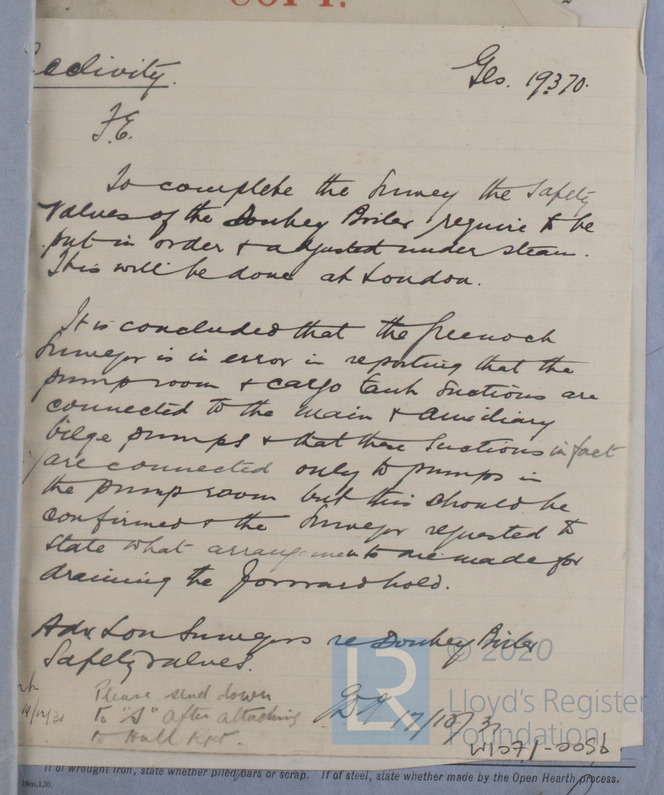 COPY.
cclivity.
Gls. 19370.
F.E.
To complete the Survey the Safety
Valves of the Donkey Boiler require to be
put in order & adjusted under steam.
This will be done at London.
It is concluded that the Greenock
Surveyor is in error in reporting that the
pump room & cargo tank suctions are
connected to the main & auxiliary
bilge pumps & that these suctions in fact
are connected only to pumps in
the pump room but this should be
confirmed & the Surveyor requested to
state what arrangements are made for
draining the forward hold.
Adv. Lon Surveyors re Donkey Boiler
Safety Valves.
Please send down
to "S" after attaching
to Hull Rpt.
17/10/31
© 2020
Lloyd's Register
Foundation
LR
If of wrought iron, state whether piled bars or scrap. If of steel, state whether made by the Open Hearth process.